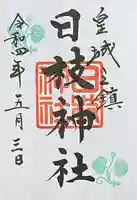 皇城之鎮
日枝神社
令和四年五月三日